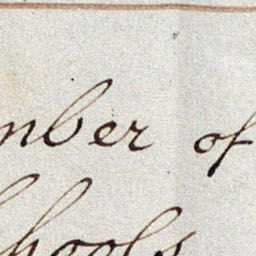 mber of
hools